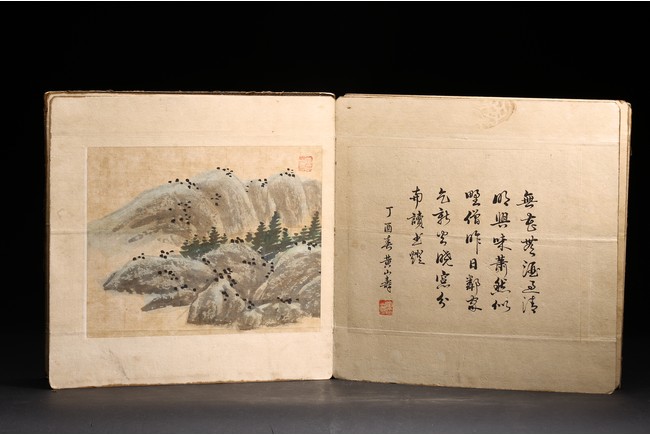 無花無酒過清
明興味蕭然似
野僧昨日鄰家
乞新火曉窗分
與讀書燈
丁酉春黃山壽